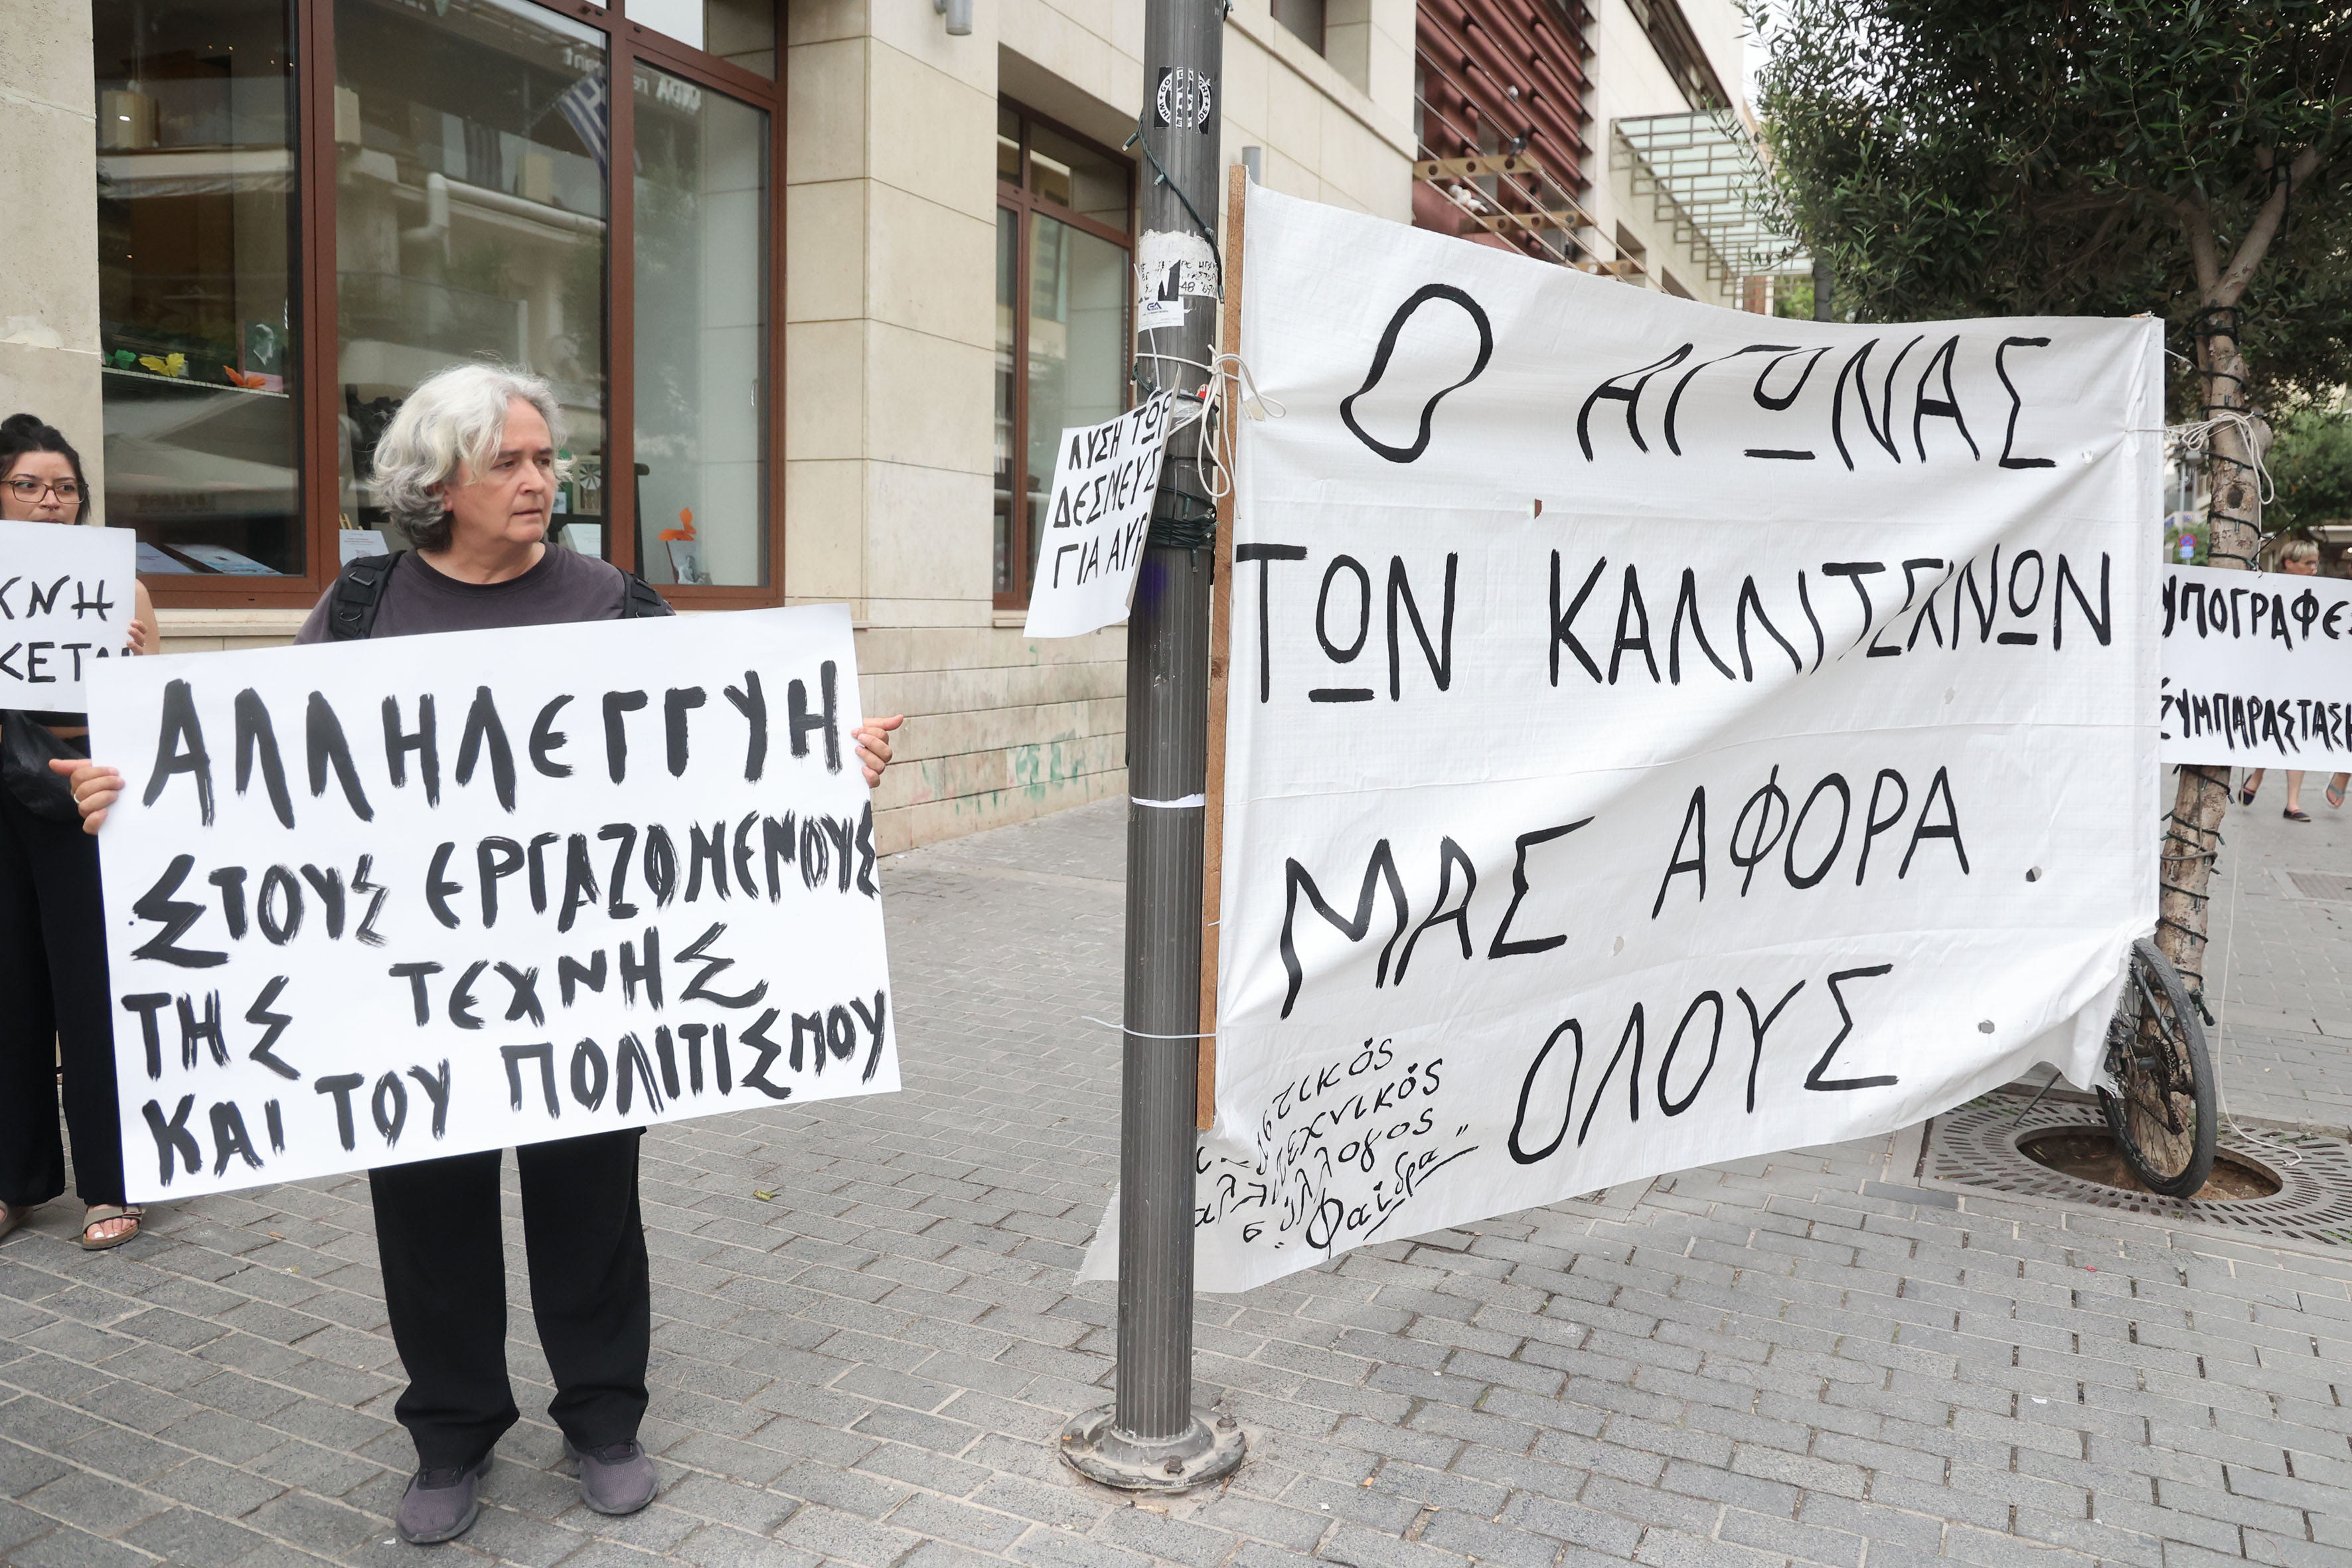 ΑΛΛΗΛΕΓΓΥΗ
ΣΤΟΥΣ ΕΡΓΑΖΟΜΕΝΟΥΣ
ΤΗΣ ΤΕΧΝΗΣ
ΚΑΙ ΤΟΥ ΠΟΛΙΤΙΣΜΟΥ
ΛΥΣΗ ΤΩΡ
ΔΕΣΜΕΥΣ
ΓΙΑ ΑΥΞ
Ο ΑΓΩΝΑΣ
ΤΩΝ ΚΑΛΛΙΤΕΧΝΩΝ
ΜΑΣ ΑΦΟΡΑ
ΟΛΟΥΣ
σύλλογος
"Φαίδρα"
ΥΠΟΓΡΑΦΕΣ
ΣΥΜΠΑΡΑΣΤΑΣΗ